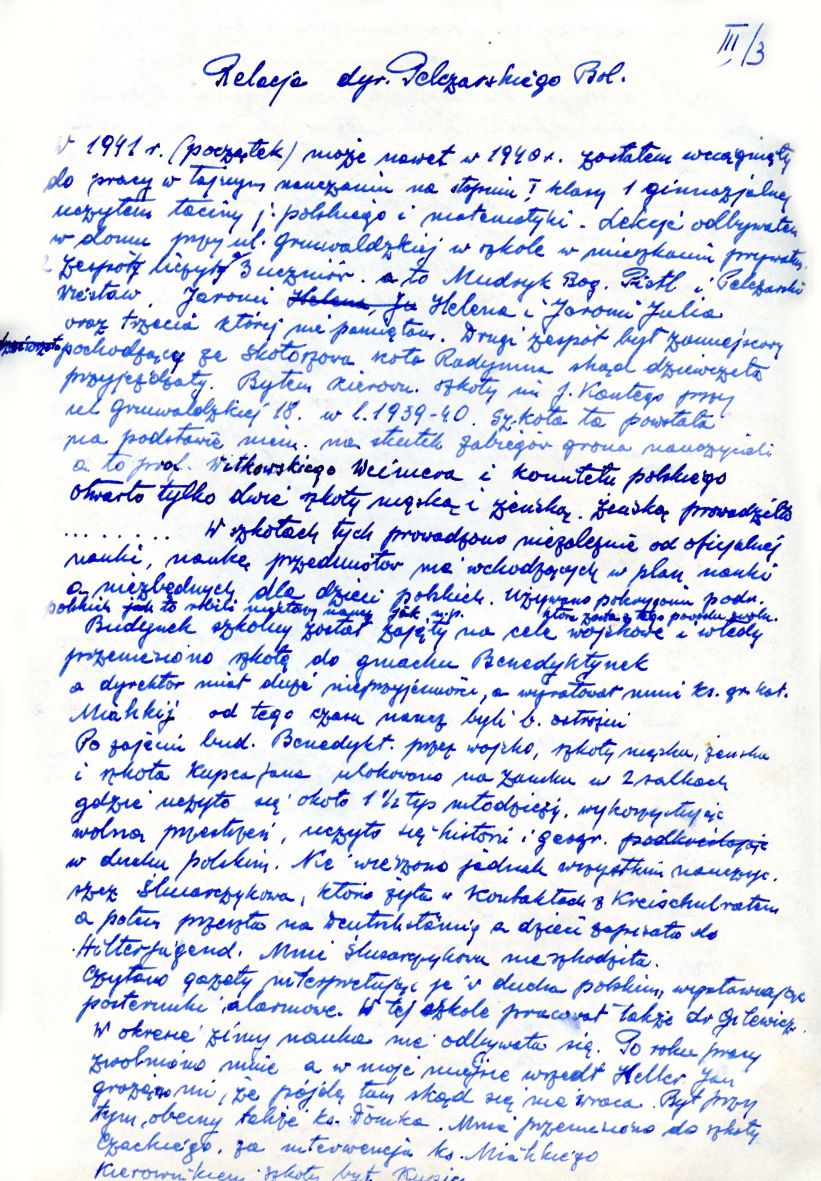 III/3
Relacja dyr. Pelczarskiego Bol.
W 1941 r. (początek) może nawet w 1940 r. zostałem wciągnięty
do pracy w tajnym nauczaniu na stopniu I klasy 1 gimnazjalnej
uczyłem łaciny j. polskiego i matematyki. Lekcje odbywałem
w domu przy ul. Grunwaldzkiej w szkole w mieszkaniu prywatn.
2 zespoły liczyły 3 uczniów. a to Mudryk Bog. Piotl i Pelczarski
Wiesław, Jaromi Helena, Ja Helena i Jaromi Julia
oraz trzecia której nie pamiętam. Drugi zespół był zamiejscowy
pochodzący ze Skołoszowa koło Radymna skąd dziewczęta
przyjeżdżały. Byłem kierown. szkoły im J. Kantego przy
ul Grunwaldzkiej 18. w l. 1939-40. Szkoła ta powstała
na podstawie niem. na skutek zabiegów grona nauczycieli
a to prof. Witkowskiego Weimera i komitetu polskiego
otwarto tylko dwie szkoły męską i żeńską. żeńską prowadziła
......... W szkołach tych prowadzono niezależnie od oficjalnej
nauki, naukę przedmiotów nie wchodzących w plan nauki
a niezbędnych dla dzieci polskich. Używano pokryjomu podr.
polskich jak to robili
Budynek szkolny został zajęty na cele wojskowe i wtedy
przeniesiono szkołę do gmachu Benedyktynek
a dyrektor miał duże nieprzyjemności, a wyratował mnie ks. gr. kat.
od tego czasu naucz byli b. ostrożni
Po zajęciu bud. Benedykt. przez wojsko, szkoły męska, żeńska
i szkoła Kupca Jana ulokowano na zamku w 2 salkach
gdzie uczyło się około 1 1/2 tys młodzieży. wykorzystując
wolną przestrzeń, uczyło się historii i geogr.
w duchu polskim. Nie wierzono jednak wszystkim nauczyc.
szcz Ślusarczykowa, która żyła w kontaktach z Kreischulratem
a potem przeszła na Deutschstämig a dzieci zapisała do
Hitlerjugend. Mnie Ślusarczykowa nie szkodziła.
Czytano gazety interpretując je w duchu polskim, wystawiając
posterunki alarmowe. W tej szkole pracował także dr Gilewicz.
W okresie zimy nauka nie odbywała się. Po roku pracy
zwolniono mnie a w moje miejsce wszedł Heller Jan
grożąc mi, że pójdę tam skąd się nie wraca. Był przy
tym obecny także ks. Dómka. Mnie przeniesiono do szkoły
Czackiego. za interwencją ks.
Kierownikiem szkoły był Kupiec